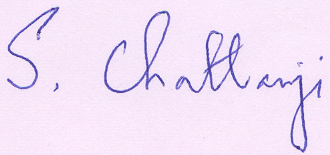 S. Chattanji